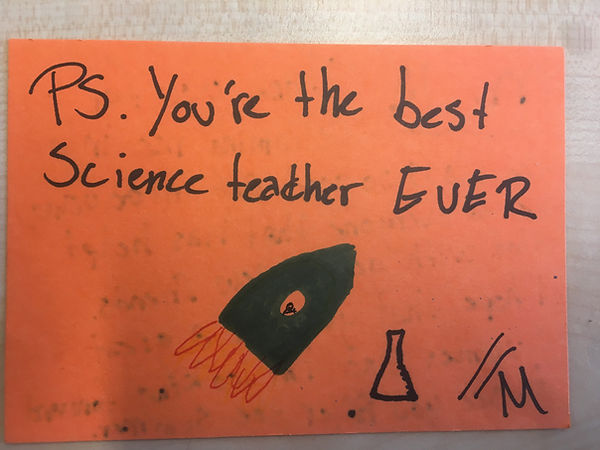 PS. You're the best
Science teacher EVER
//M